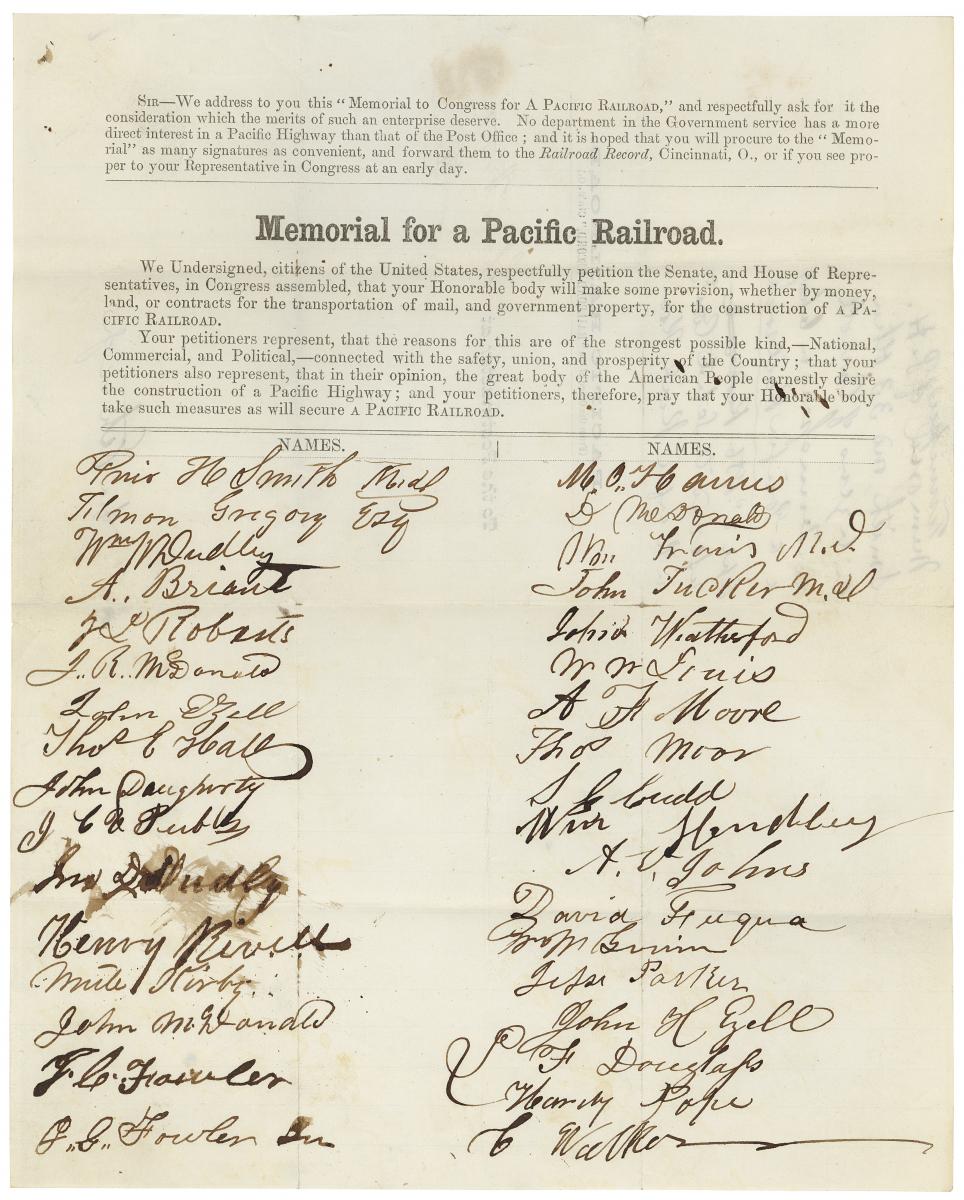 SIR—We address to you this "Memorial to Congress for A PACIFIC RAILROAD," and respectfully ask for it the
consideration which the merits of such an enterprise deserve. No department in the Government service has a more
direct interest in a Pacific Highway than that of the Post Office; and it is hoped that you will procure to the "Memo-
rial" as many signatures as convenient, and forward them to the Railroad Record, Cincinnati, O., or if you see pro-
per to your Representative in Congress at an early day.
Memorial for a Pacific Railroad.
We Undersigned, citizens of the United States, respectfully petition the Senate, and House of Repre-
sentatives, in Congress assembled, that your Honorable body will make some provision, whether by money,
land, or contracts for the transportation of mail, and government property, for the construction of A PA-
CIFIC RAILROAD.
Your petitioners represent, that the reasons for this are of the strongest possible kind,—National,
Commercial, and Political,—connected with the safety, union, and prosperity of the Country; that your
petitioners also represent, that in their opinion, the great body of the American People earnestly desire
the construction of a Pacific Highway; and your petitioners, therefore, pray that your Honorable body
take such measures as will secure A PACIFIC RAILROAD.
NAMES.
H Smith
Tilmon Gregory Esq
Wm Dudley
A. Briant
Roberts
J. R. McDonald
John Ezell
Thos E Hall
John Daugherty
J C
Jno Dudly
Henry
Kirby
John McDonald
F. C. Fowler
Fowler
NAMES.
M. O. Harris
D McDonald
Wm Travis M.d.
John Tucker M.d
John Weatherford
W W
A F Moore
Thos Moor
Cudd
Wm
A. V. Johns
David Fuqua
Jesse Parker
John H Ezell
F Douglass
Hardy Pope
C Walker